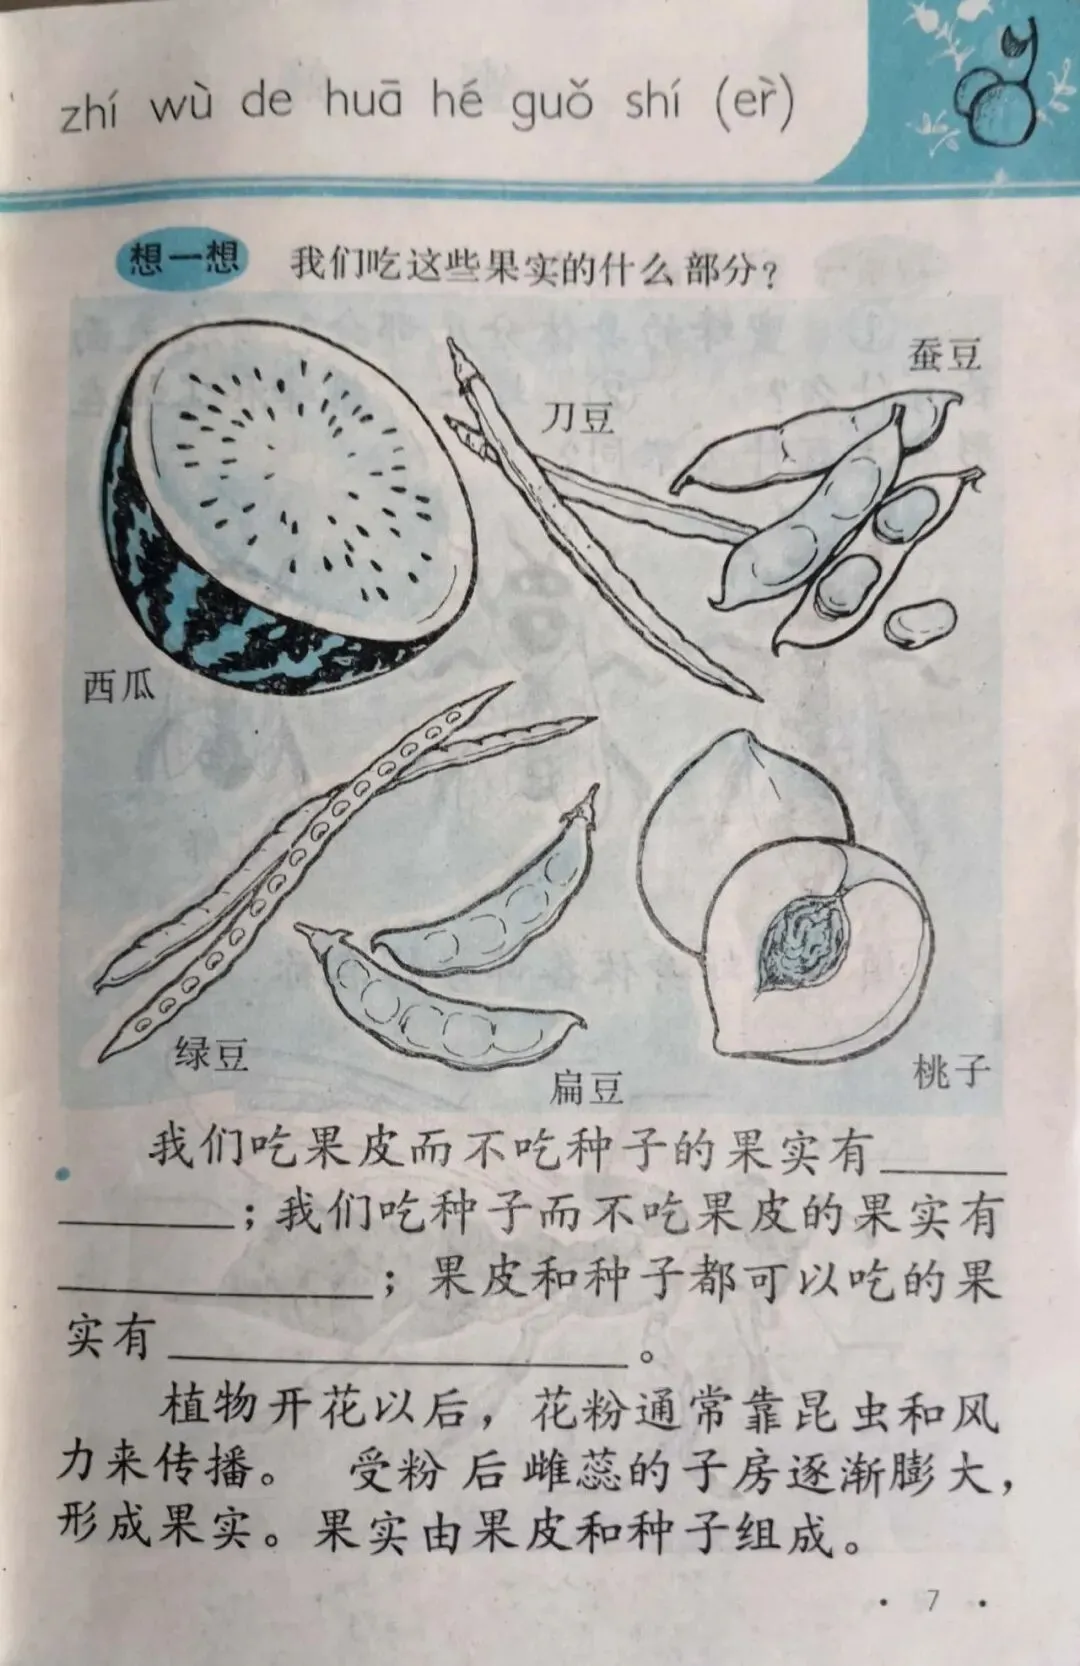 zhí wù de huā hé guǒ shí (èr)
想一想 我们吃这些果实的什么部分?
蚕豆
刀豆
西瓜
绿豆
扁豆
桃子
我们吃果皮而不吃种子的果实有______
________;我们吃种子而不吃果皮的果实有
______________;果皮和种子都可以吃的果
实有____________________。
植物开花以后,花粉通常靠昆虫和风
力来传播。 受粉后雌蕊的子房逐渐膨大,
形成果实。果实由果皮和种子组成。
· 7 ·